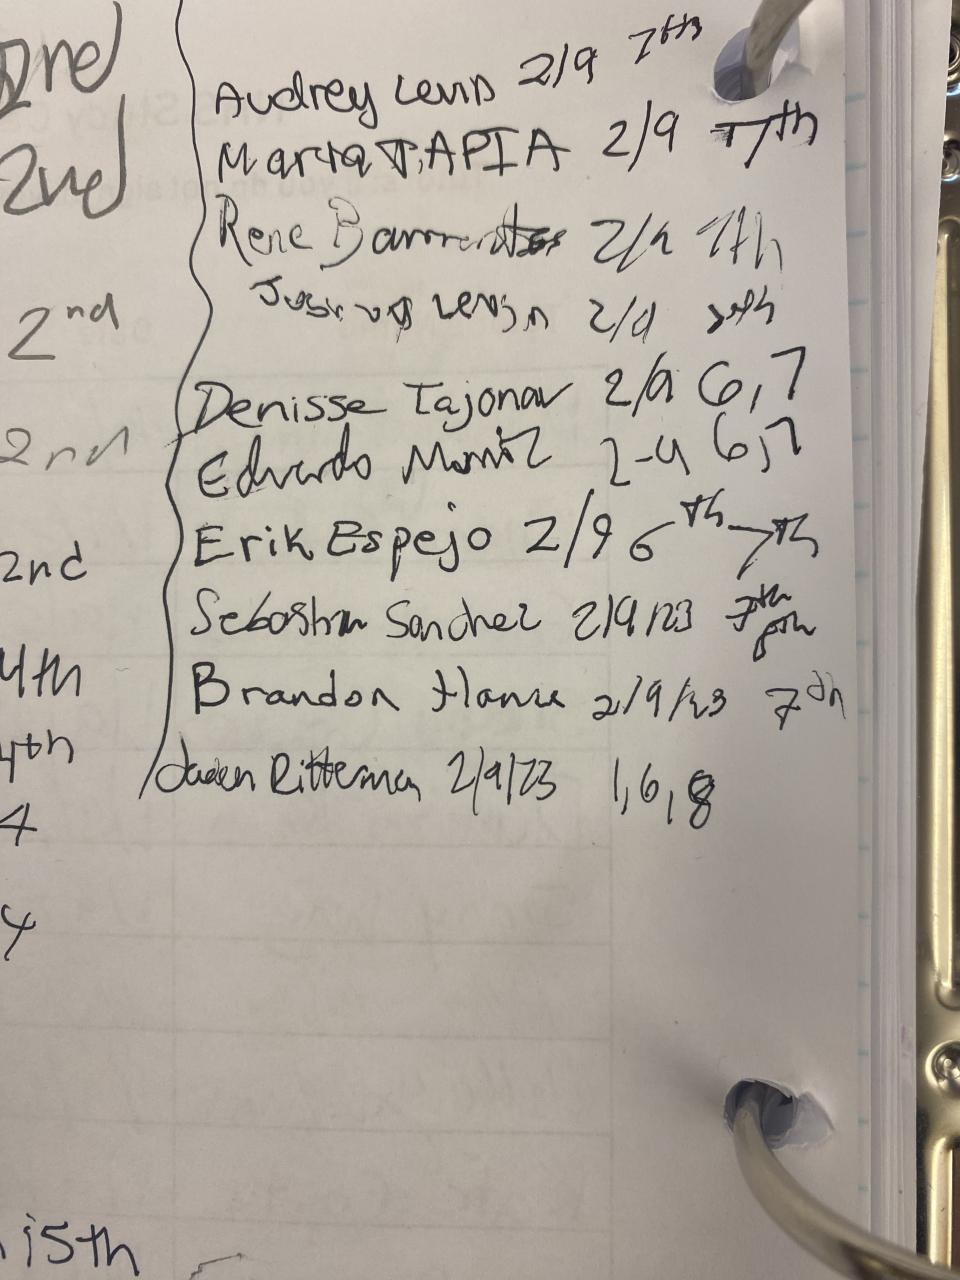 2nd
2nd
2nd
2nd
2nd
4th
4th
4
4
15th
Audrey 2/9 7th
Maria TAPIA 2/9 7th
Rene 2/9 7th
2/9
Denisse Tajonar 2/9 6,7
Eduardo Muniz 2-9 6,7
Erik Espejo 2/9 6th 7th
Sebastian Sanchez 2/9/23 7th
Brandon 2/9/23 7th
Jaden Ritterman 2/9/23 1,6,8